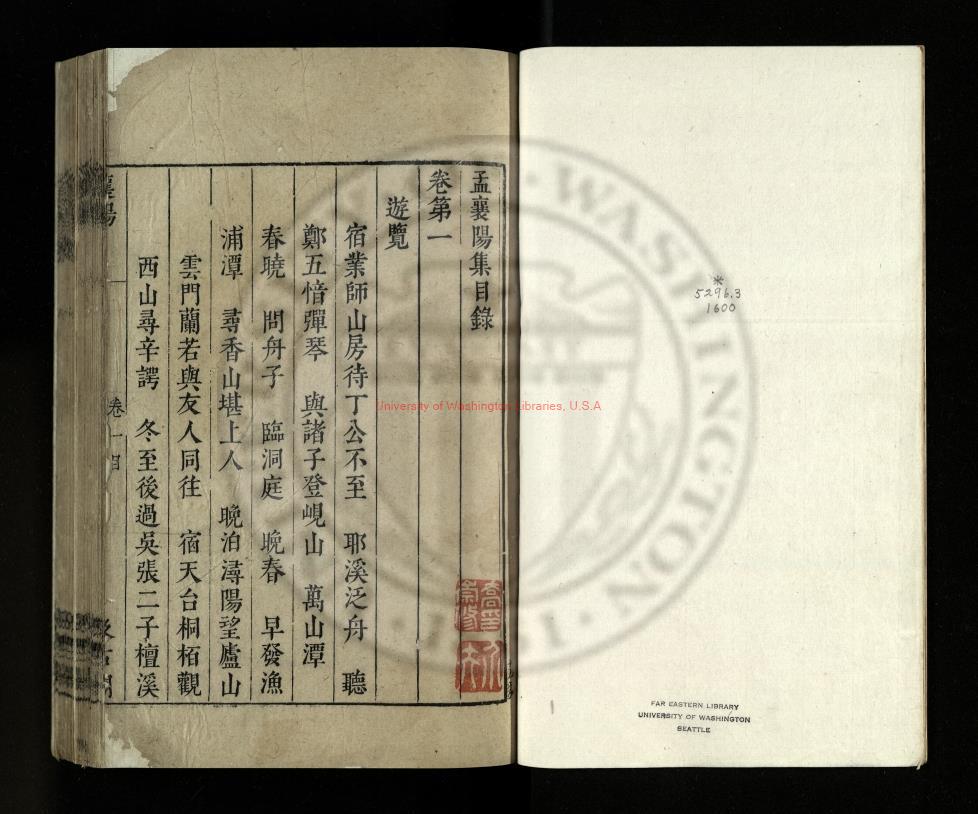 孟襄陽集目錄
卷第一
遊覽
宿業師山房待丁公不至 耶溪泛舟 聽
鄭五愔彈琴 與諸子登峴山 萬山潭
春曉 問舟子 臨洞庭 晚春 早發漁
浦潭 尋香山堪上人 晚泊潯陽望廬山
雲門蘭若與友人同往 宿天台桐栢觀
西山尋辛諤 冬至後過吳張二子檀溪
襄陽
卷一目
*
5296.3
1600
FAR EASTERN LIBRARY
UNIVERSITY OF WASHINGTON
SEATTLE
University of Washington Libraries, U.S.A
WASHINGTON